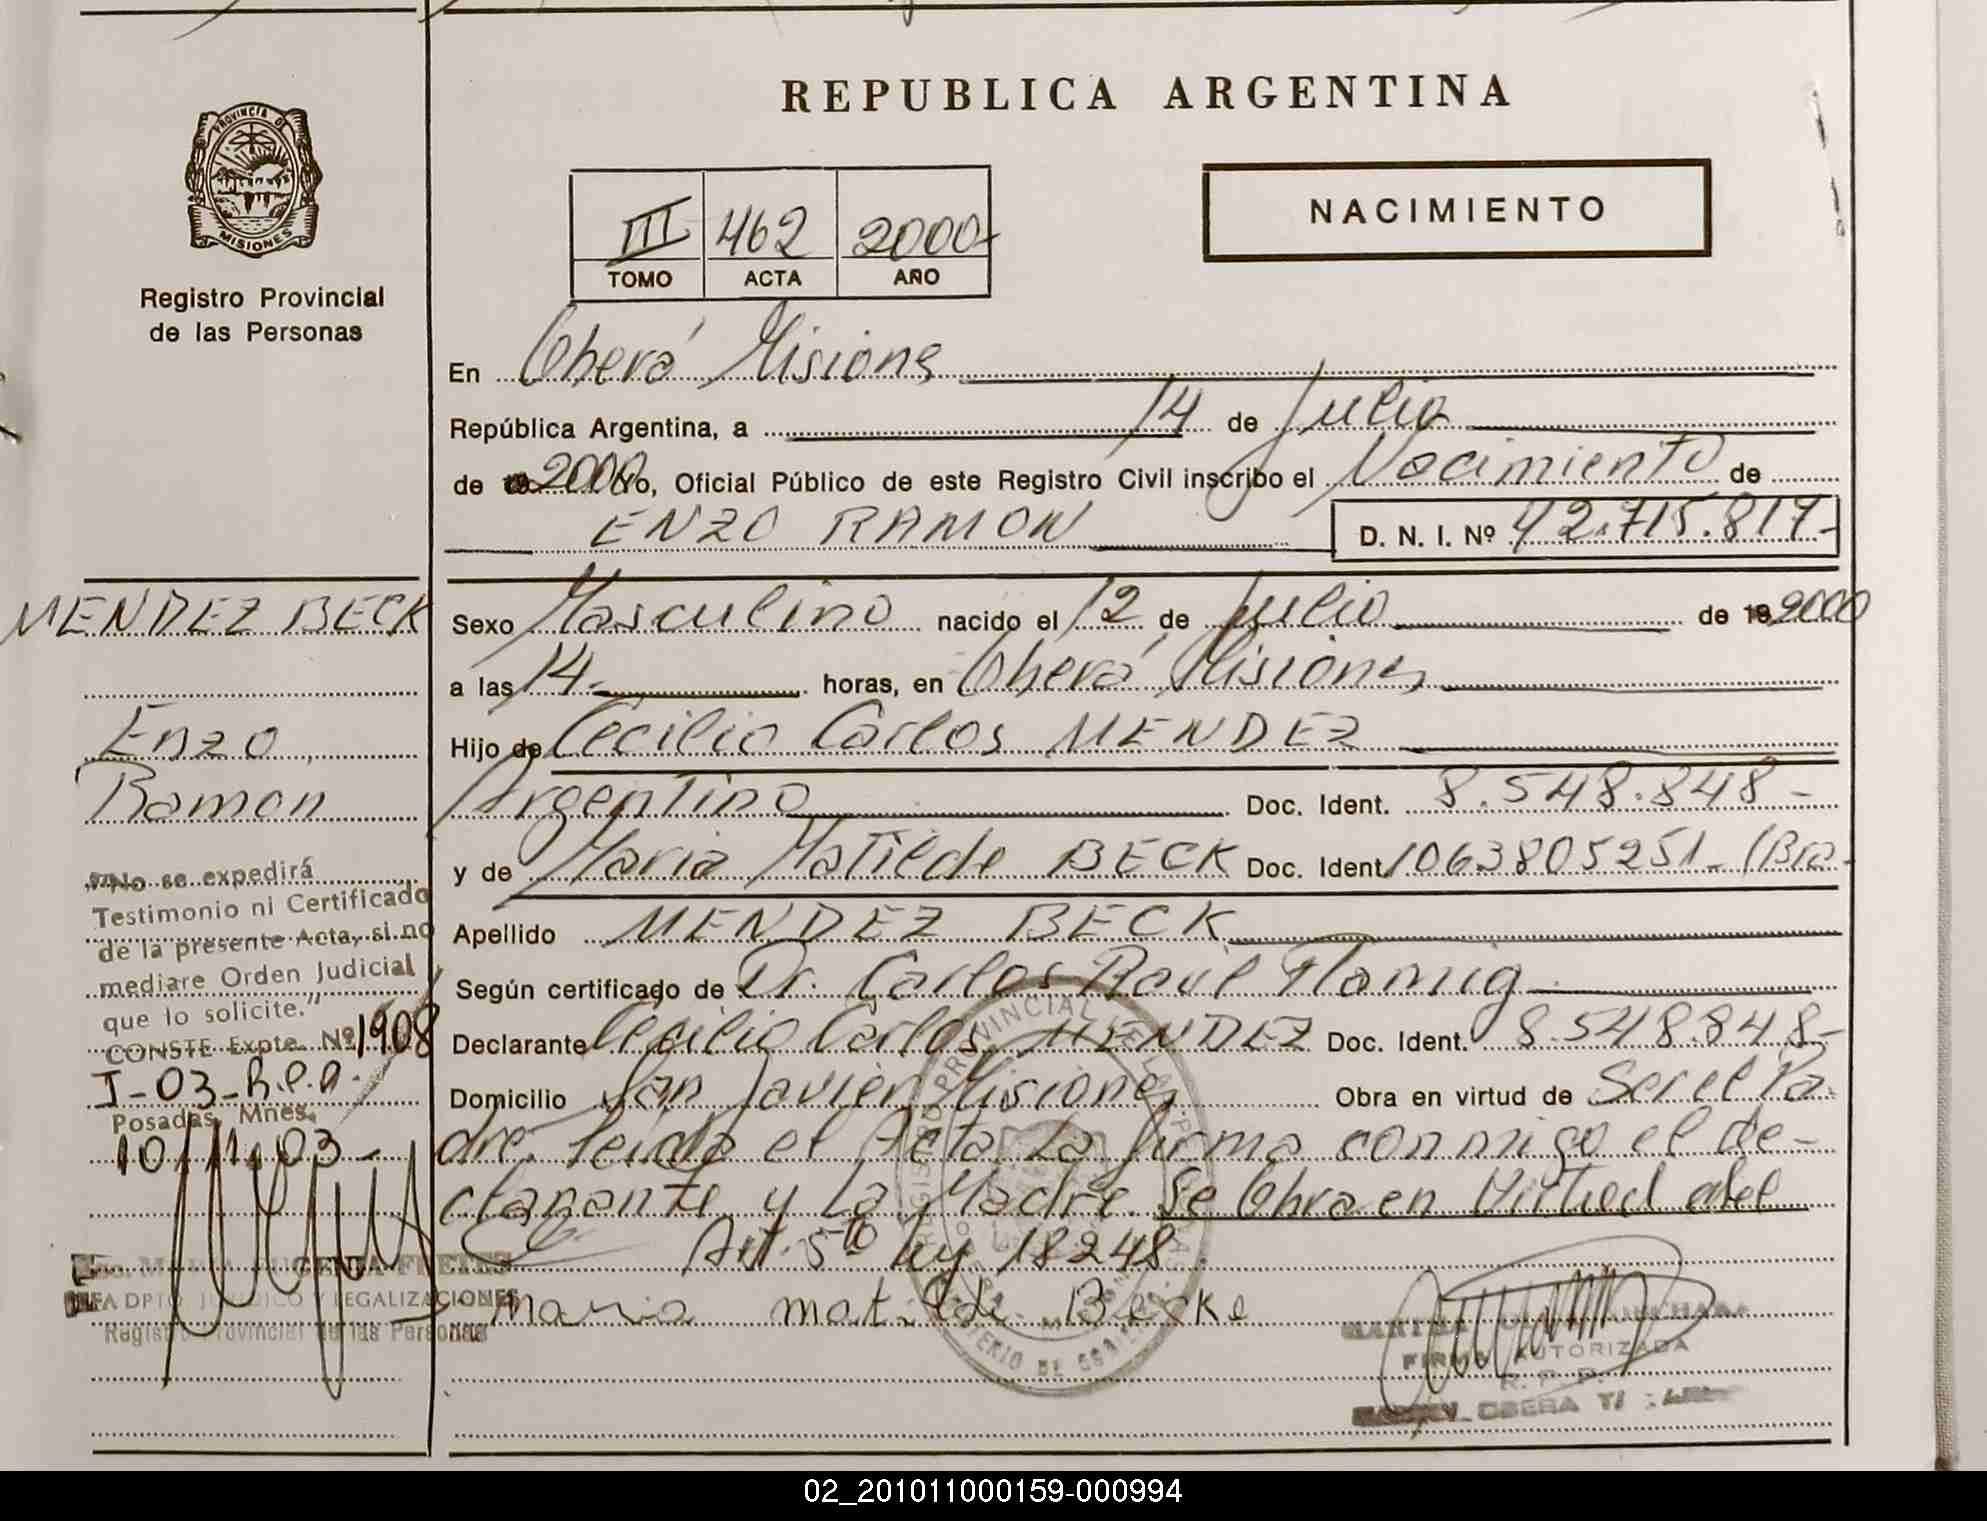 REPUBLICA ARGENTINA
PROVINCIA DE
MISIONES
Registro Provincial
de las Personas
III 462 2000-
TOMO ACTA AÑO
NACIMIENTO
En Oberá Misiones
República Argentina, a 14 de Julio
de 2000 Yo, Oficial Público de este Registro Civil inscribo el Nacimiento de
ENZO RAMON D. N. I. Nº 42.715.817-
MENDEZ BECK
Enzo
Ramon
"No se expedirá
Testimonio ni Certificado
de la presente Acta, si no
mediare Orden Judicial
que lo solicite."
CONSTE Expte. Nº 1908
J-03-R.P.P.
Posadas, Mnes.
10/11/03-
JEFA DPTO JURIDICO Y LEGALIZACIONES
Registro Provincial de las Personas
Sexo Masculino nacido el 12 de Julio de 192000
a las 14- horas, en Oberá Misiones
Hijo de Cecilio Carlos MENDEZ
Argentino Doc. Ident. 8.548.848-
y de Maria Matilde BECK Doc. Ident. 1063805251-(Bra-
Apellido MENDEZ BECK
Según certificado de Dr. Carlos Raúl Flamig
Declarante Cecilio Carlos MENDEZ Doc. Ident. 8.548.848-
Domicilio San Javier Misiones Obra en virtud de Ser el Pa-
dre. Leída el Acta La firma conmigo el de-
clarante y La Madre. Se Obra en Virtud del
Art. 5to ley 18248.
maria matilde Becke
FIRMA AUTORIZADA
R. P. P.
02_201011000159-000994